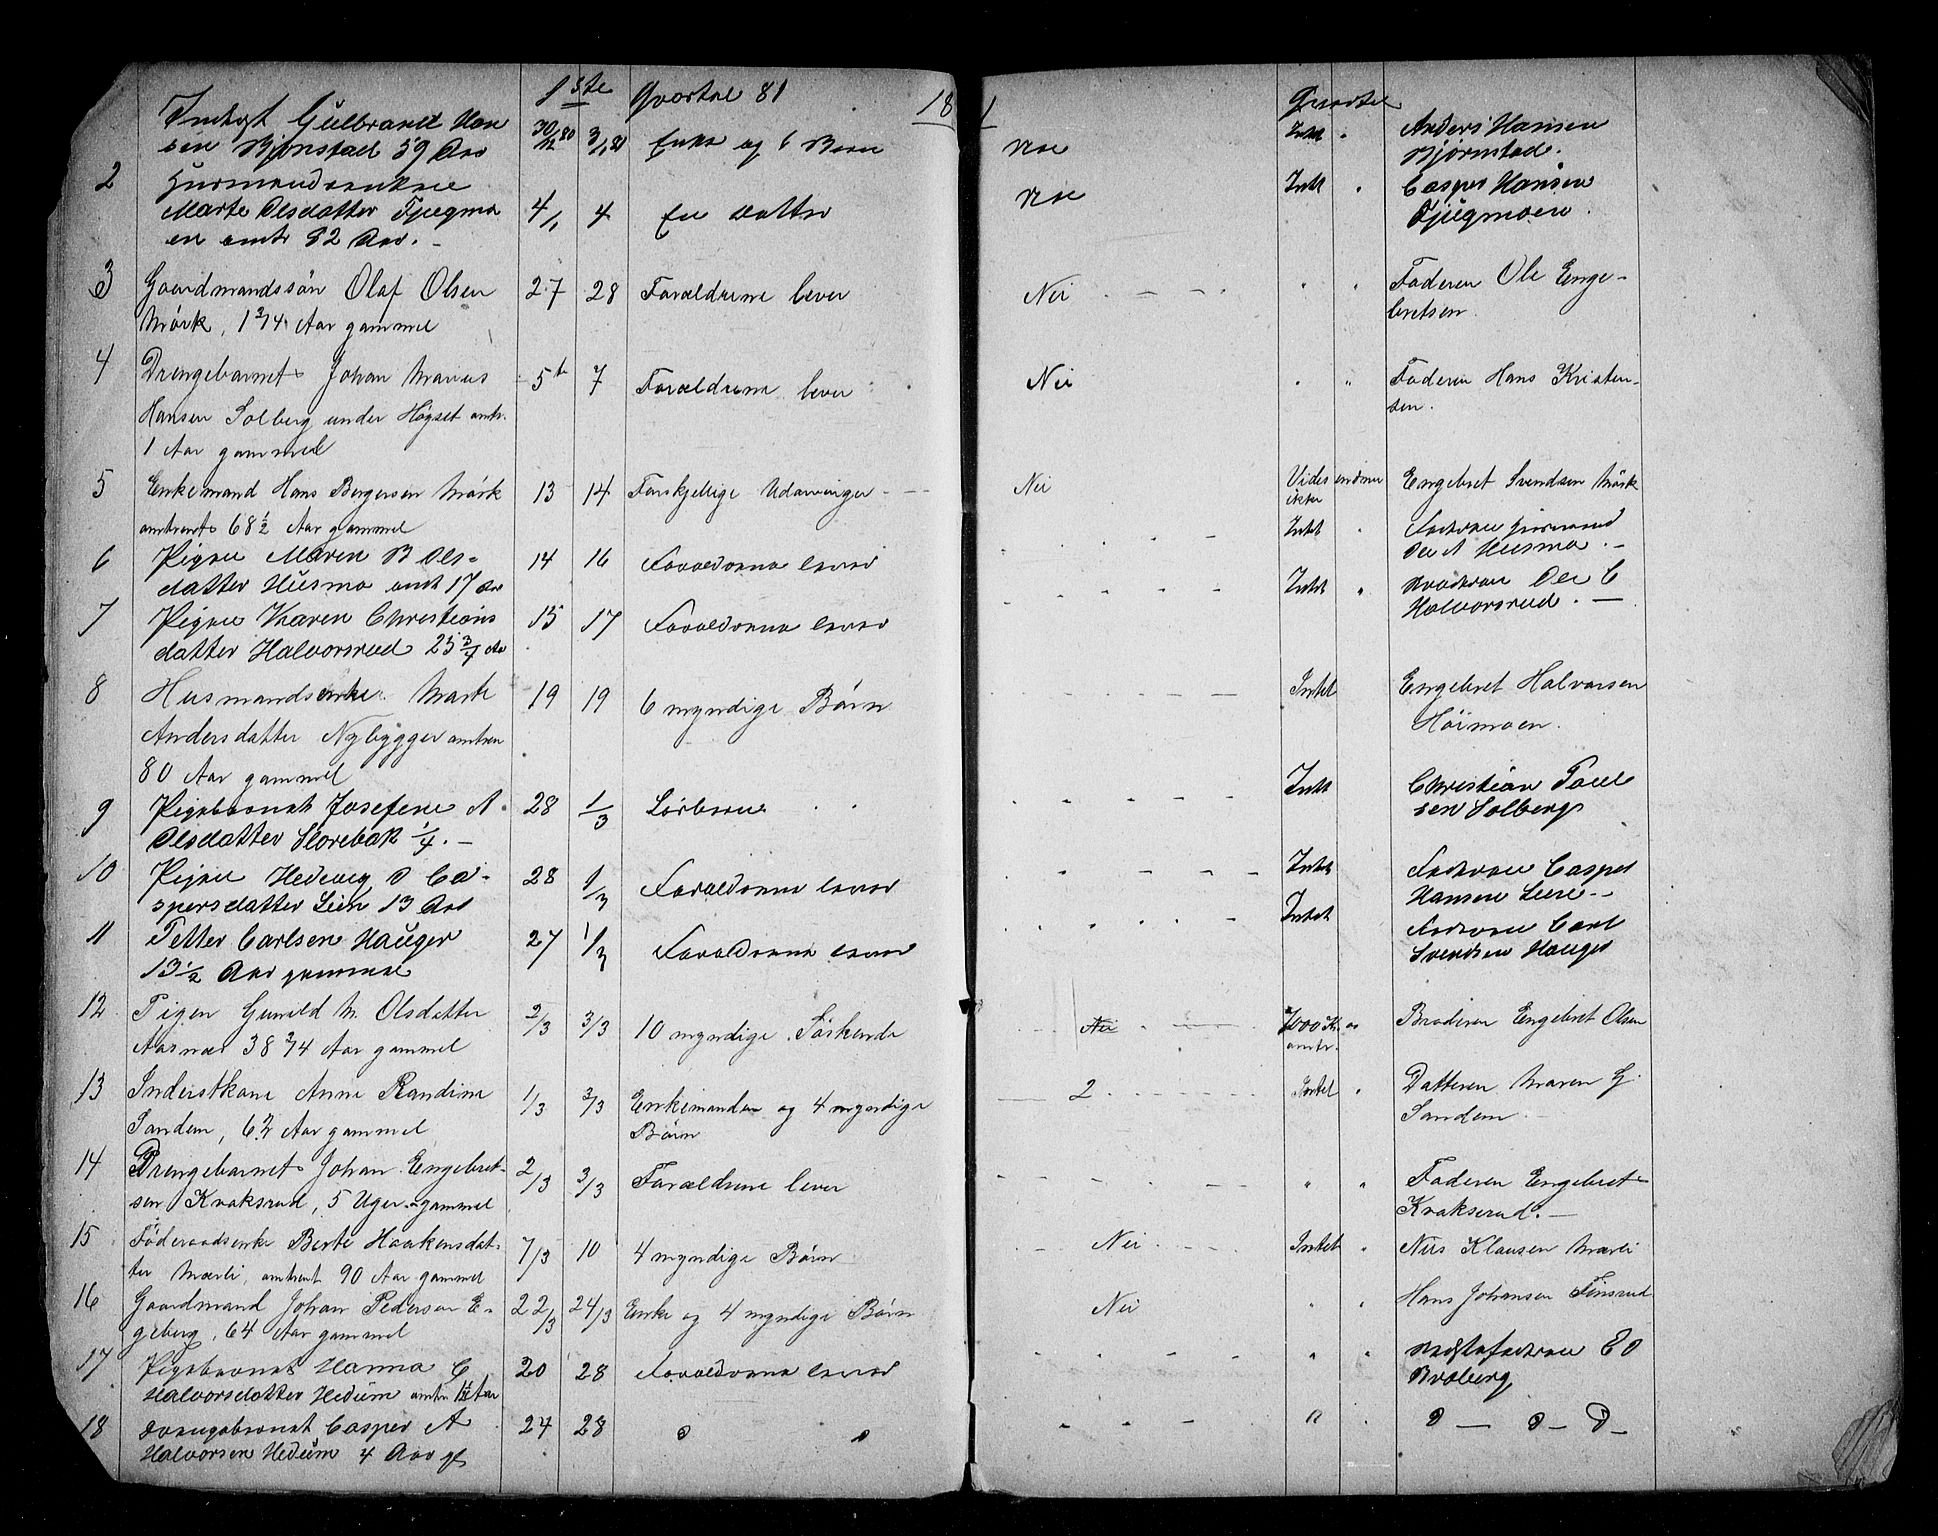 1ste Qvartal 81
181 Quartal
Indest Gulbrand Han
sen Bjönstad 59 Aar 30/12 80 3/1 81 Enke og 6 Børn Nei Intet " Anders Hansen
Bjørnstad.
2 Husmandsenken
Marte Olsdatter Tjugmo
en amtr 82 Aar. - 4/1 4 En datter Nei Intet " Casper Hansen
Tjugmoen.
3 Gaardmandssön Olaf Olsen 27 28 Forældrene lever Nei " " Faderen Ole Enge-
Mörk, 1 3/4 Aar gammel bretsen
4 Drengebarnet Johan Marius 5te 7 Forældrene lever Nei " " Faderen Hans Kristen-
Hansen Solberg under Høgset amtr. sen.
1 Aar gammel
5 Enkemand Hans Bergersen Mörk 13 14 Forskjellige Udarvinger Nei Vides endnu Engebret Svendsen Mörk
amtrent 68 1/2 Aar gammel ikke
6 Pigen Maren B Ols- 14 16 Forældrene lever Intet " Faderen Husmand
datter Husmo amt 17 Aar Ole A Husmo. -
7 Pigen Karen Christians 15 17 Forældrene lever Intet " Broderen Ole C
datter Halvorsrud 23 3/4 Aar Halvorsrud. -
8 Husmandsenke Marte 19 19 6 myndige Börn Intet Engebret Halvorsen
Andersdatter Nybygger amtren Höimoen.
80 Aar gammel
9 Pigebarnet Josefine A 28 1/3 Intet Christian Paul
Olsdatter Slorebak 1/4. - sen Solberg
10 Pigen Hedevig D Ca- 28 1/3 Forældrene lever Intet Faderen Casper
spersdatter Lien 13 Aar Hansen Lien -
11 Petter Carlsen Hauger 27 1/3 Forældrene lever Intet Faderen Carl
13 1/2 Aar gammel Svendsen Hauger
12 Pigen Gunild M. Olsdatter 2/3 3/3 10 myndige Söskende Nei 1000 Kr. Broderen Engebret Olsen
Aasnæs 38 3/4 Aar gammel amtr.
13 Inderstkone Anne Randine 1/3 3/3 Enkemanden og 4 myndige 2 Intet " Datteren Maren G.
Sandem, 62 Aar gammel Börn Sandem
14 Drengebarnet Johan Engebret- 2/3 3/3 Forældrene lever " " Faderen Engebret
sen Kvakerud, 5 Uger gammel Kvakserud. -
15 Föderaadsenke Berte Haakensdat- 7/3 10 4 myndige Börn Nei Intet " Nils Klausen Mærli
ter Mærli, amtrent 90 Aar gammel
16 Gaardmand Johan Pedersen E- 22/3 24/3 Enke og 4 myndige Börn Nei " " Hans Johansen Finsrud
geberg, 64 Aar gammel
17 Pigebarnet Hanna C 20 28 Forældrene lever " " E O
Halvorsdatter Hedum amtr Aar Broberg
18 Drengebarnet Casper A 24 28 D D " D - D - D -
Halvorsen Hedum 4 Aar gl